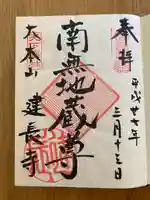 奉拝
平成廿七年
三月十三日
南無地蔵尊
大本山
建長寺